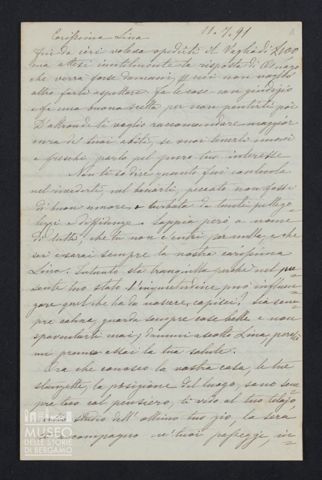 11. 7. 91
Carissima Lina
Fin da ieri volevo spedirti il Vaglia di £100
ma attesi inutilmente la risposta di
che verrà forse domani, e non voglio
altro farti aspettare. Fa le cose con giudizio
e fa una buona scelta per non pentirti poi
D'altronde ti voglio raccomandare maggior
cura de' tuoi abiti, se vuoi tenerli
e freschi, parlo pel puro tuo interesse
Non ti so dire quanto fui contento
nel rivederti, nel baciarti, peccato non fossi
di buon umore, e turbata da tanti pettego
lezzi e diffidenze. Sappia però a nome
di tutti, che tu non c'entri per nulla, e che
sei e sarai sempre la nostra carissima
Lina. Intanto sta tranquilla perchè nel pre
sente tuo stato l'inquietudine può influen
zare quel che ha da nascere, capisci? Sta sem
pre calma, guarda sempre cose belle e non
spaventarti mai; dammi ascolto Lina,
mi preme assai la tua salute.
Ora che conosco la vostra casa, le tue
stanzette, la posizione del luogo, sono sem
pre teco col pensiero, ti vedo al tuo
studio dell'ottimo tuo zio, la sera
accompagno ne' tuoi passeggi, in
MUSEO
DELLE STORIE
DI BERGAMO